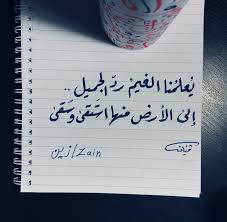 يُعلمُنا الغيمُ ردّ الجميل ..
إلى الأرض منها استقى وسقى
زين/Zain